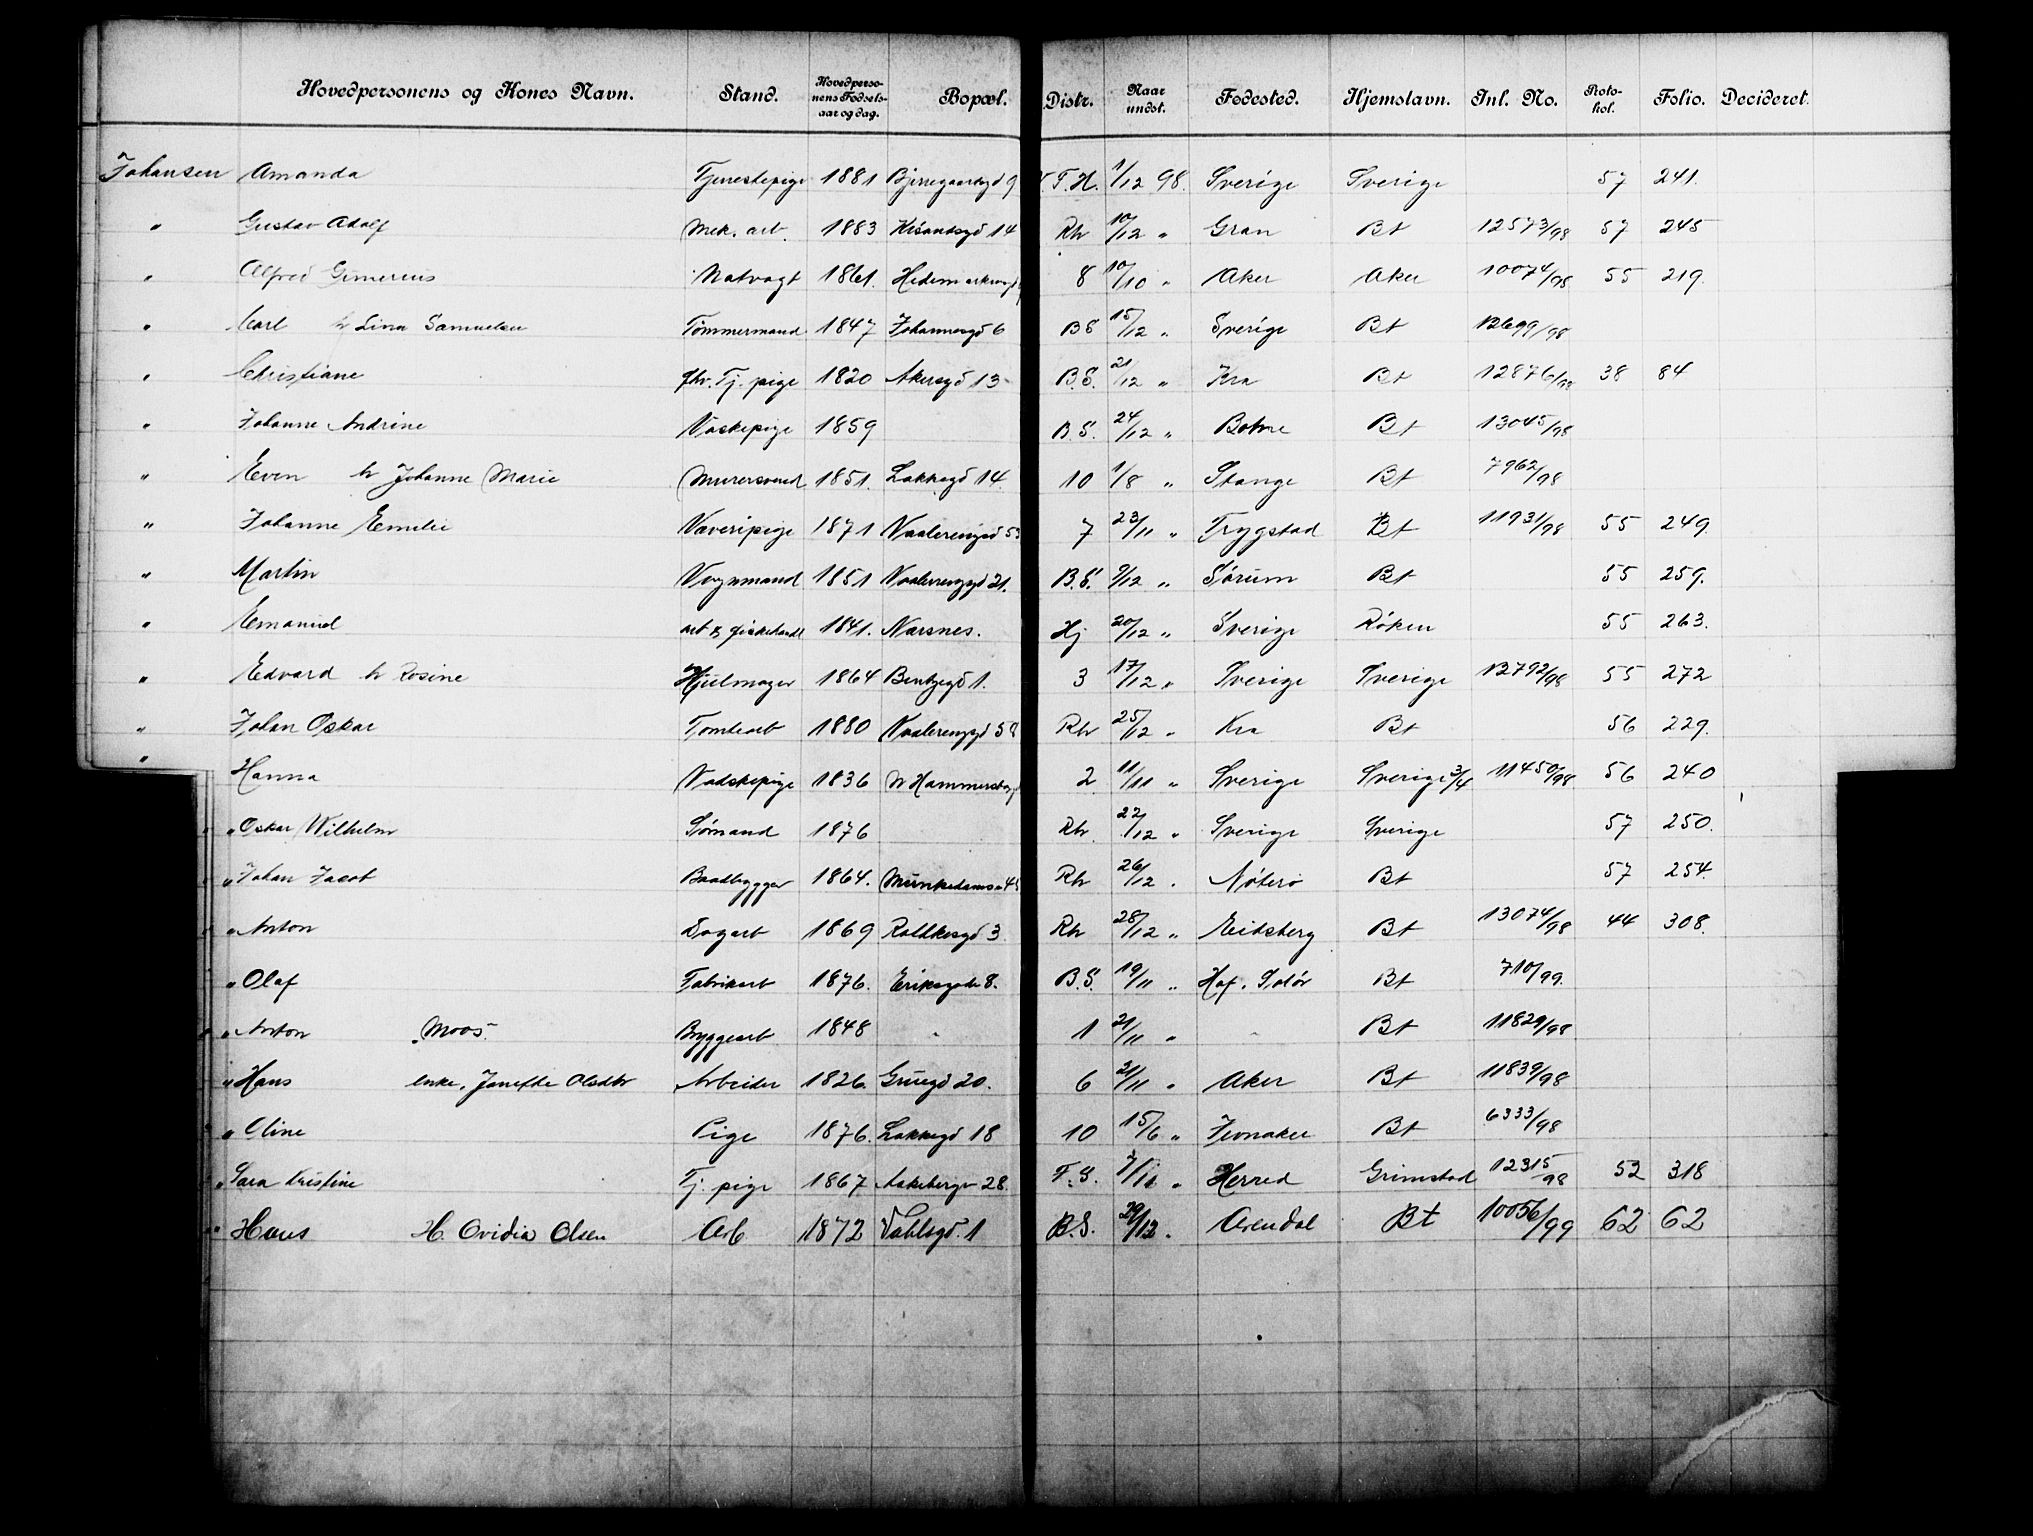 Hovedpersonens og Kones Navn. Stand. Hovedpersonens Fødsels-aar og dag. Bopæl. Distr. Naar undst. Fødested. Hjemstavn. Inl. No. Protokol. Folio. Decideret.
Johansen Amanda Tjenestepige 1881 Bjerregaardsgd 9 F.H. 1/12 98. Sverige Sverige 57 241.
" Gustav Adolf Mek. arb. 1883 Krsandsgd 14 Rh 10/12 " Gran Bt 12573/98 57 245
" Alfred Natvagt 1861. 8 10/10 " Aker Aker 10074/98 55 219.
" Carl h Lina Samuelsen Tømmermand 1847 Johannesgd 6 BS 15/12 " Sverige Bt 12699/98
" Christiane fhv. Tj. pige 1820 Akersgd 13 B.S. 21/12 " Kra Bt 12876/98 38 84
" Johanne Andrine Vaskepige 1859 B.S. 24/12 " Botne Bt 13045/98
" Even h Johanne Marie Murersvend 1851. Lakkegd 14. 10 1/8 " Stange Bt 7962/98
" Johanne Emilie Væveripige 1871 Vaalerenggd 53 7 23/11 " Trygstad Bt 11931/98 55 249.
" Martin Vognmand 1851 Vaalerenggd 21. B.S. 9/12 " Sørum Bt 55 259.
" Emanuel arb & fiskehandl 1841. Nærsnes. Hj 20/12 " Sverige Røken 55 263.
" Edvard h Rosine Hjulmager 1864 Bentsegd 1. 3 17/12 " Sverige Sverige 12792/98 55 272
" Johan Oskar Tomtearb 1880 Vaalerenggd 58 Rh 25/12 " Kra Bt 56 229.
" Hanna Vadskepige 1836 2 11/11 " Sverige Sverige 3/4 11450/98. 56 240
" Oskar Wilhelm Sømand 1876 Rh. 22/12 " Sverige Sverige 57 250.
" Johan Jacob Baadbygger 1864. Munkedamsv 45 Rh 26/12 " Nøterø Bt 57 254.
" Anton Dagarb 1869 Rolfkesgd 3 Rh 28/12 " Eidsberg Bt 13074/98 44 308.
" Olaf Fabrikarb 1876. Eriksgade 8. B.S. 19/11 " Hof. Solør Bt 710/99.
" Anton Moos. Bryggearb 1848 " 1 21/11 " " Bt 11829/98
" Hans enke, Josefte Olsdtr Arbeider 1826. Gruegd 20. 6 21/11 " Aker Bt 11839/98
" Oline Pige 1876. Lakkegd 18 10 15/6 " Jevnaker Bt 6333/98
" Sara Kristine Tj. pige 1867 Aakebergv 28. F.S. 7/11 " Herred Grimstad 12315/98 52 318
" Hans H. Ovidia Olsen Arb 1872 Vahlsgd. 1 B.S. 29/12. Arendal Bt 10056/99 62 62